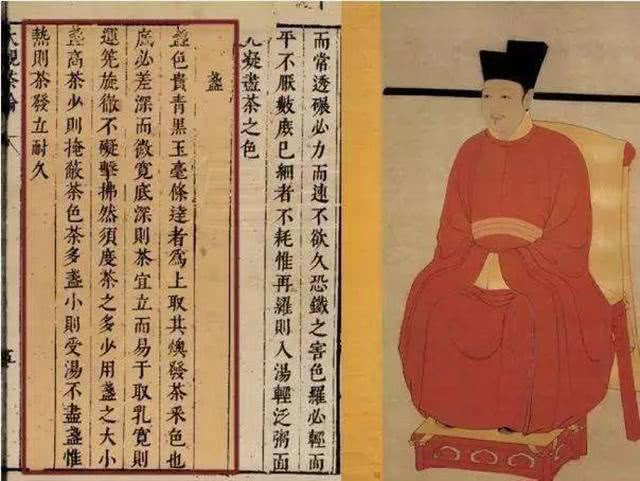 而常透碾必力而速不欲久恐鐵之害色羅必輕而
平不厭數庶已細者不耗惟再羅則入湯輕泛粥面
光凝盡茶之色
盞
盞色貴青黑玉毫條達者爲上取其燠發茶采色也
底必差深而微寬底深則茶宜立而易于取乳寬則
運筅旋徹不礙擊拂然須度茶之多少用盞之大小
盞高茶少則掩蔽茶色茶多盞小則受湯不盡盞惟
熱則茶發立耐久
大觀茶論